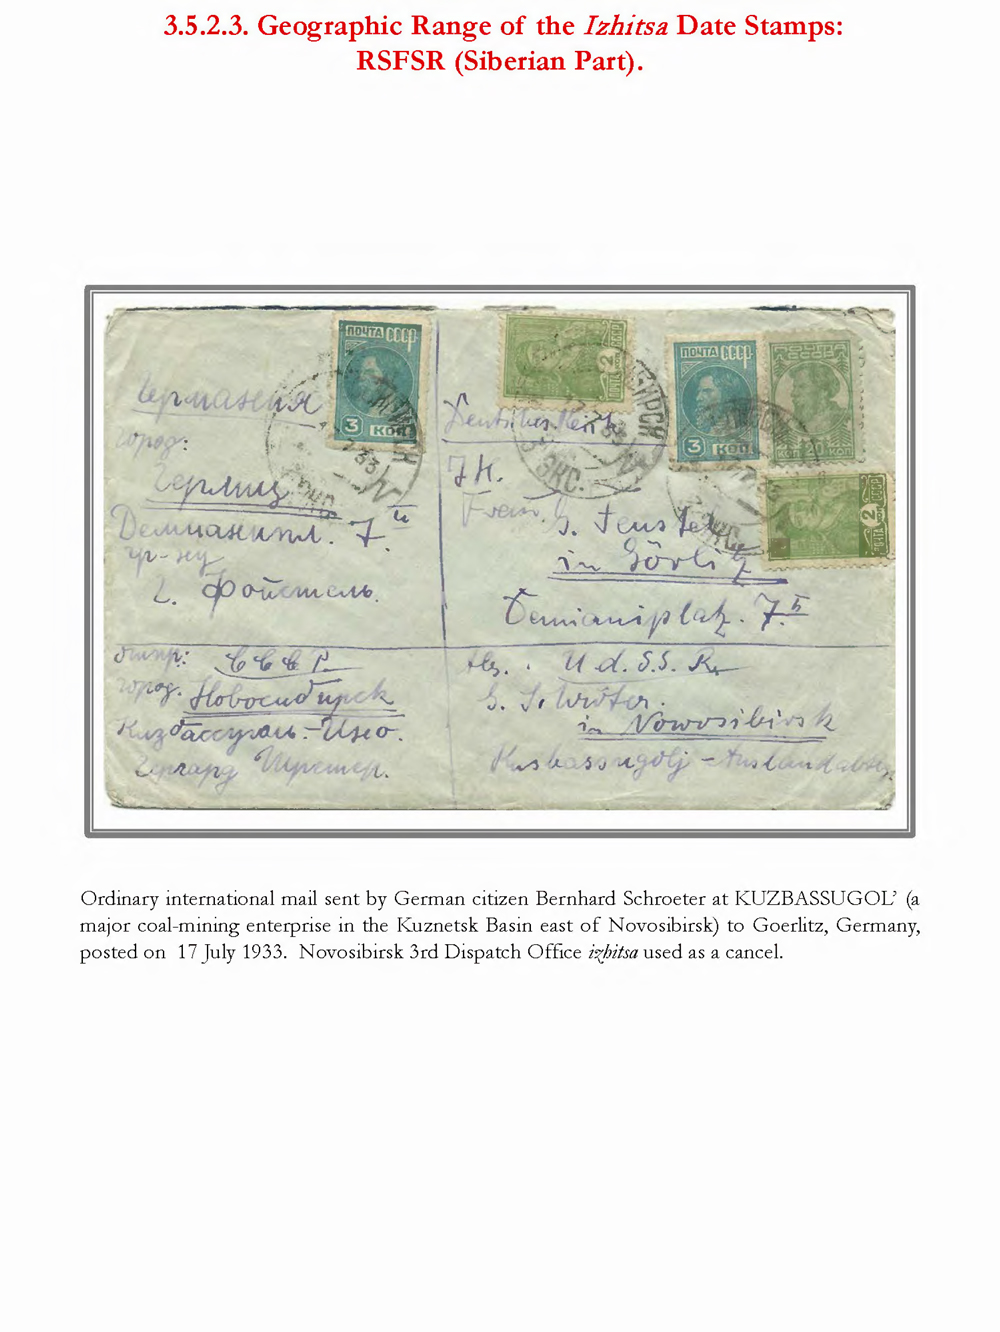 3.5.2.3. Geographic Range of the Izhitsa Date Stamps:
RSFSR (Siberian Part).
ПОЧТА СССР
3 КОП
ПОЧТА СССР
3 КОП
20 КОП КОП
ПОЧТА 2 КОП СССР
ПОЧТА 2 КОП СССР
17.7.33
3 ЭКС.
Германия
город:
Герлиц
Демианипл. 7
гр-ну
Г. Фойстель.
Deutsches Reich
in Görlitz
Demianiplatz. 7.
отпр: СССР.
город. Новосибирск
Кузбассуголь.-Ино.
Герхард Шретер.
Abs. U.d.S.S.R.
G. Schröter.
in Nowosibirsk
Kusbassugolj - Auslandabtei
Ordinary international mail sent by German citizen Bernhard Schroeter at KUZBASSUGOL’ (a
major coal-mining enterprise in the Kuznetsk Basin east of Novosibirsk) to Goerlitz, Germany,
posted on 17 July 1933. Novosibirsk 3rd Dispatch Office izhitsa used as a cancel.